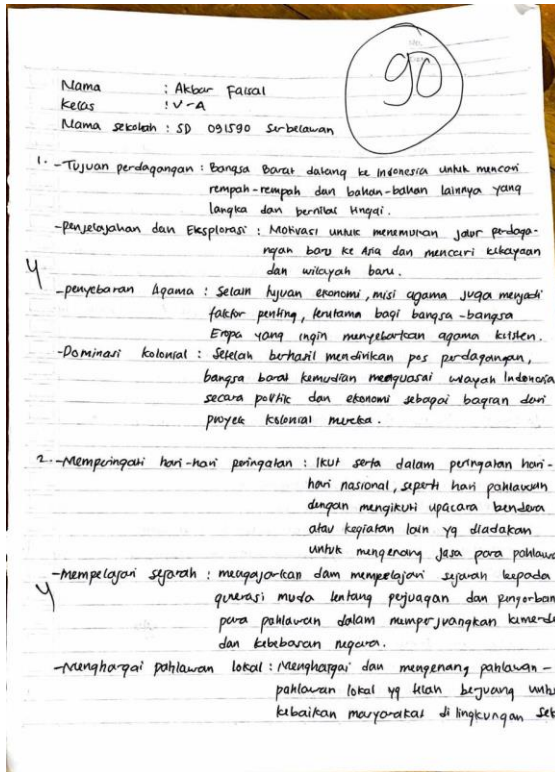 90
Nama : Akbar Faisal
Kelas : V-A
Nama sekolah : SD 091590 Serbelawan
1. -Tujuan perdagangan : Bangsa Barat datang ke Indonesia untuk mencari
rempah-rempah dan bahan-bahan lainnya yang
langka dan bernilai tinggi.
-penjelajahan dan Eksplorasi : Motivasi untuk menemukan jalur perdaga-
ngan baru ke Asia dan mencari kekayaan
dan wilayah baru.
4
-penyebaran Agama : Selain tujuan ekonomi, misi agama juga menjadi
faktor penting, terutama bagi bangsa-bangsa
Eropa yang ingin menyebarkan agama kristen.
-Dominasi kolonial : Setelah berhasil mendirikan pos perdagangan,
bangsa barat kemudian menguasai wilayah Indonesia
secara politik dan ekonomi sebagai bagian dari
proyek kolonial mereka.
2. -Memperingati hari-hari peringatan : Ikut serta dalam peringatan hari-
hari nasional, seperti hari pahlawan
dengan mengikuti upacara bendera
atau kegiatan lain yg diadakan
untuk mengenang jasa para pahlawa
-mempelajari sejarah : mengajarkan dam mempelajari sejarah kepada
4
generasi muda tentang perjuagan dan pengorban
para pahlawan dalam memperjuangkan kemerde
dan kebebasan negara.
-Menghargai pahlawan lokal : Menghargai dan mengenang pahlawan-
pahlawan lokal yg telah berjuang untu
kebaikan masyarakat di lingkungan sek